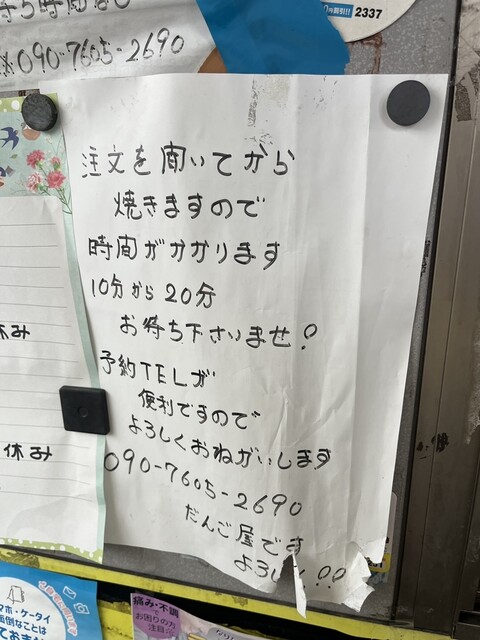 待ち時間なし
※090-7605-2690
2337
注文を聞いてから
焼きますので
時間がかかります
10分から20分
お待ち下さいませ!
予約TELが
便利ですので
よろしくおねがいします
090-7605-2690
だんご屋です
よろし !!
休み
休み
マホ・ケータイ
面倒なことは
痛み・不調
でお困りの方
注目